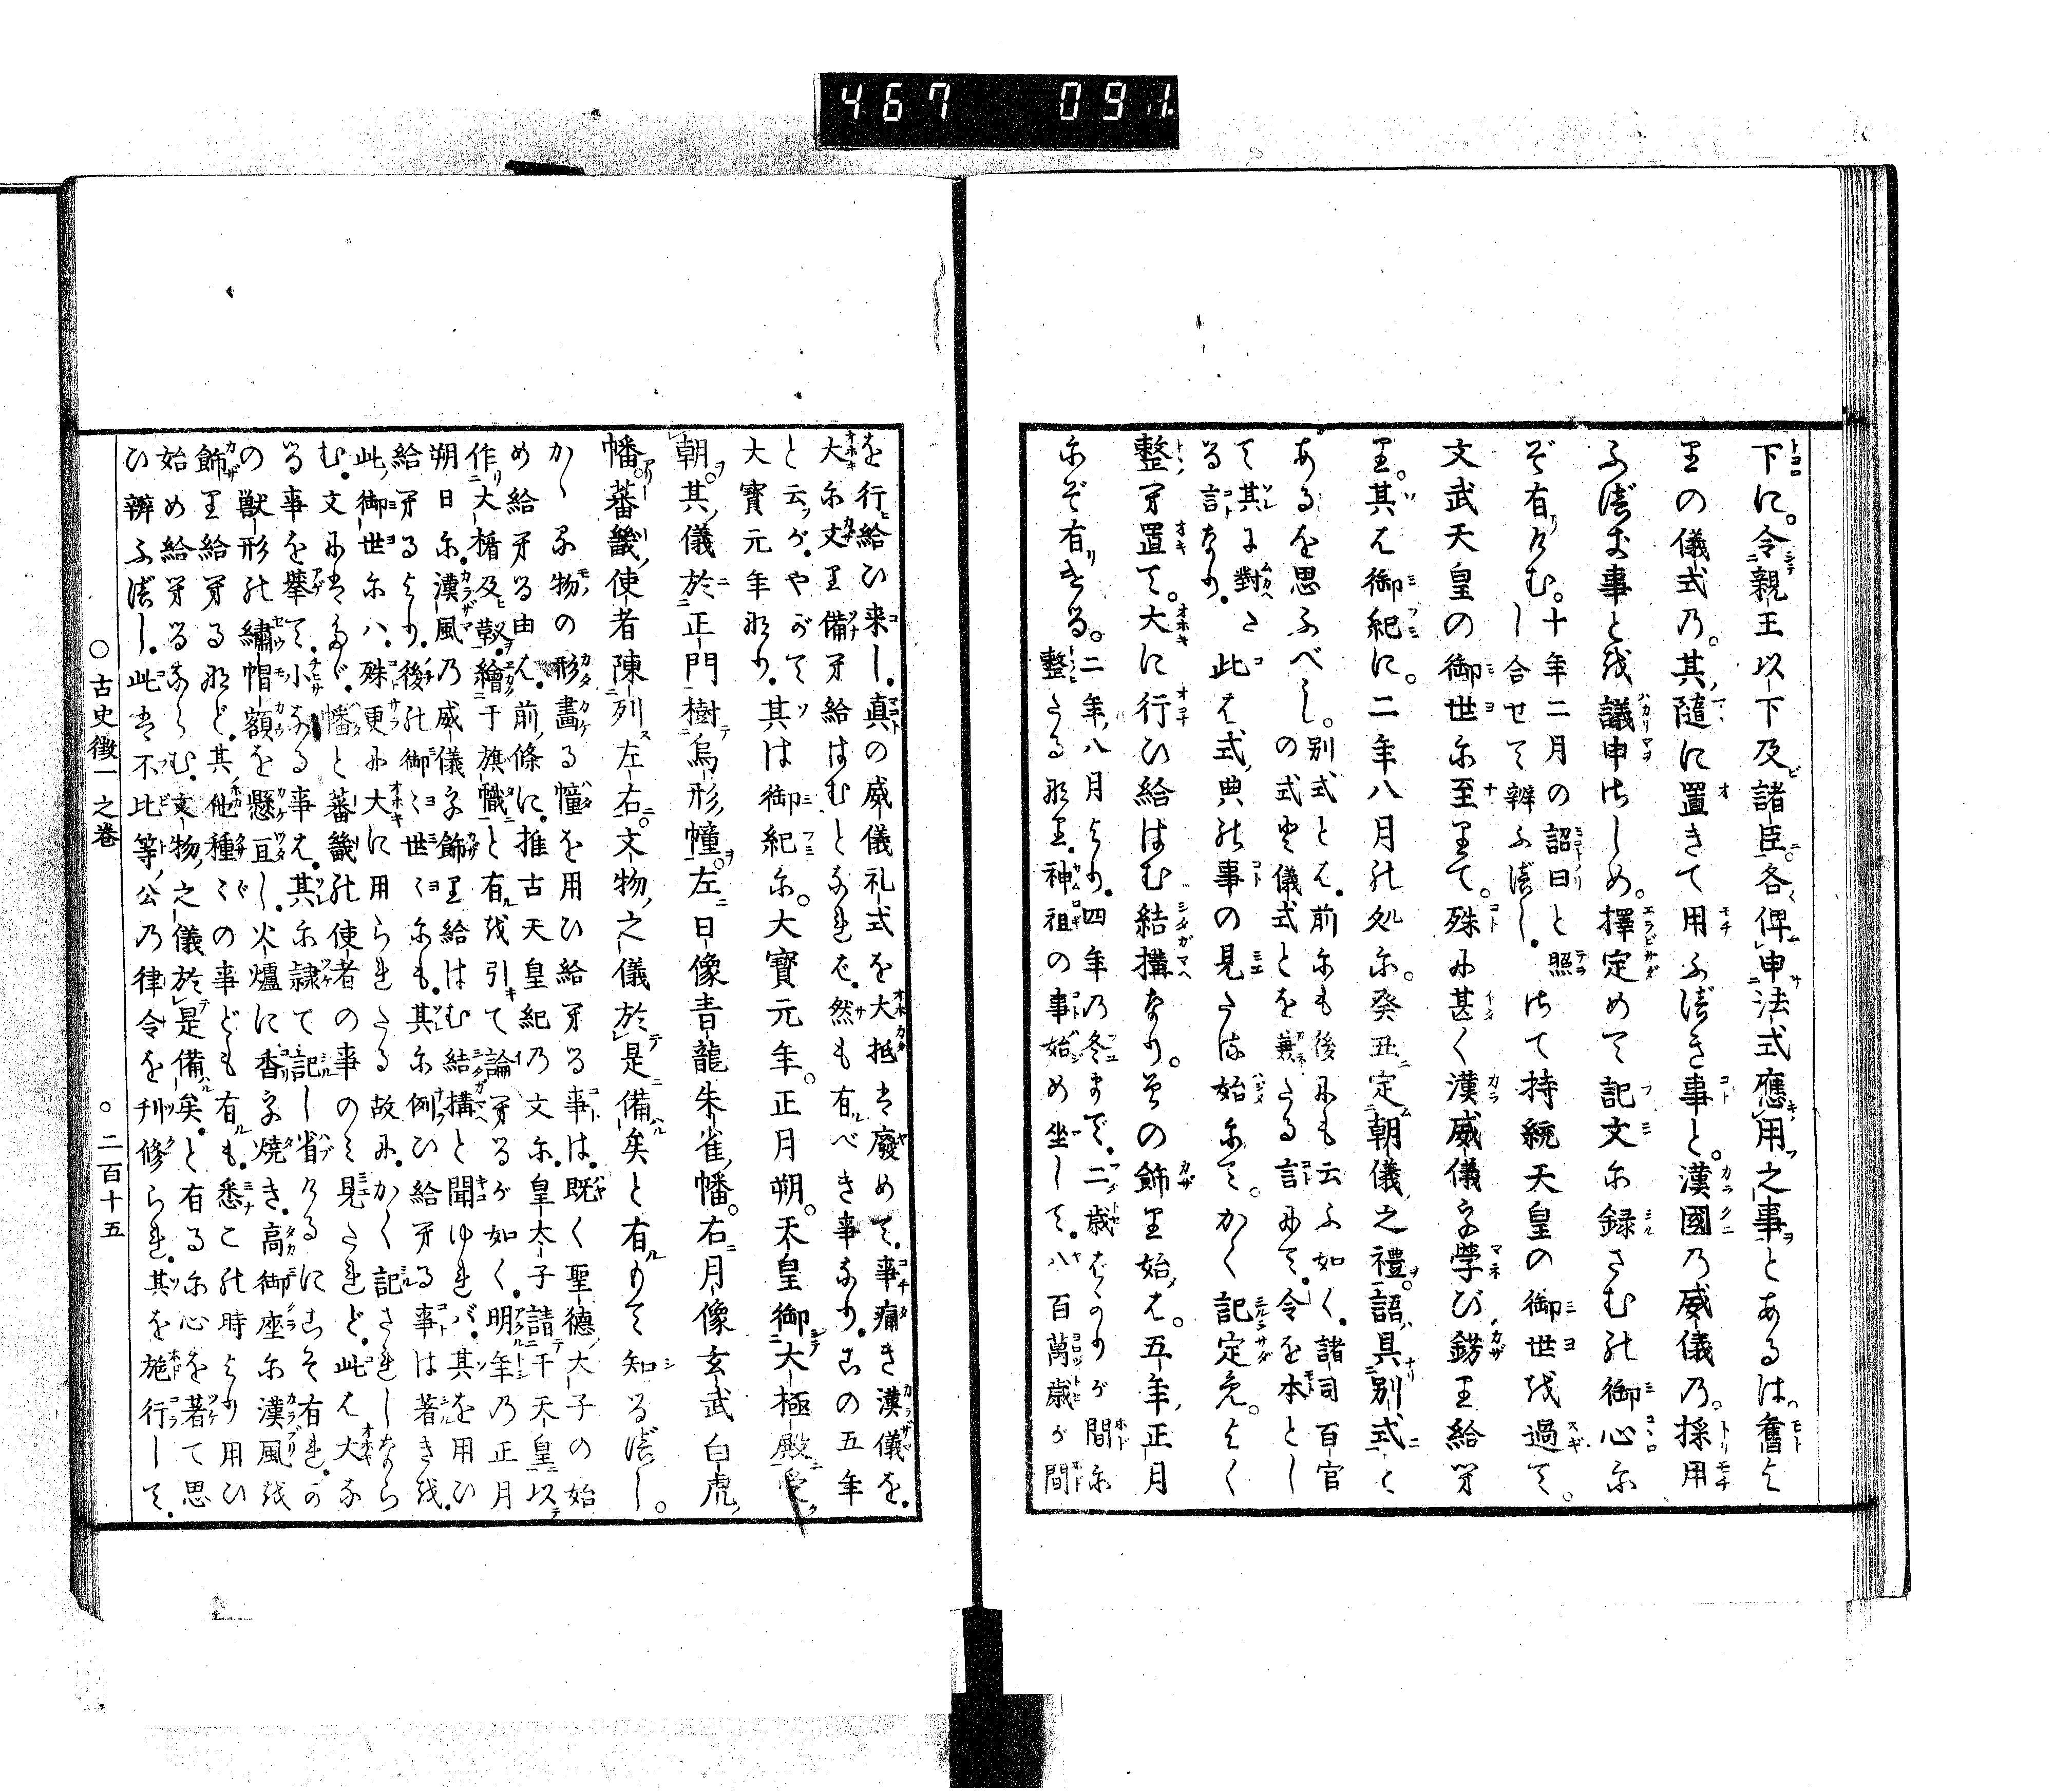 467 091
下に。令親王以下及諸臣。各俾申法式應用之事とあるは。舊よ
りの儀式乃。其隨に置きて用ふ底き事と。漢國乃威儀乃。採用
ふ底き事と越議申さしめ。擇定めて記文尓録さむ能御心尓
ぞ有けむ。十年二月の詔曰と照
し合せて辨ふ底し。さて持統天皇の御世越過て。
文武天皇の御世尓至りて。殊尓甚く漢威儀乎學び錺り給ひ
り。其は御紀に。二年八月能処尓。癸丑定朝儀之禮。語具別式と
あるを思ふべし。別式とは。前尓も後尓も云ふ如く。諸司百官
の式登儀式とを兼たる言尓て。令を本とし
て其に對へ
る言なり。此は式典能事の見たる始尓て。かく記定免。よく
整牙置て。大に行ひ給はむ結構なり。その飾り始は。五年正月
尓ぞ有ける。二年八月より。四年乃冬まで。二歳ばかりが間尓
整たる那り。神祖の事始め坐して。八百萬歳が間
を行給ひ来し。真の威儀礼式を大抵は廢めて。事痛き漢儀を。
大尓文り備牙給はむとなれば。然も有べき事なり。この五年
と云ふが。やがて
大寶元年那り。其は御紀尓。大寶元年。正月朔。天皇御大極殿受
朝。其儀於正門樹烏形幢。左日像青龍朱雀幡。右月像玄武白虎
幡。蕃畿使者陳列左右。文物之儀於是備矣と有りて知る底し。
かゝる物の形畵る幢を用ひ給牙る事は。既く聖德太子の始
め給牙る由は。前條に。推古天皇紀乃文尓。皇太子請于天皇以
作大楯及靫。繪于旗幟と有越引て論牙るが如く。明年乃正月
朔日尓。漢風乃威儀乎飾り給はむ結構と聞ゆれバ。其を用ひ
給牙るより。後能御ミ世ミ尓も。其尓例ひ給牙る事は著き越。
此御世尓ハ。殊更尓大に用られたる故尓。かく記されしなら
む。文尓は多ゞ。幡と蕃畿能使者の事のミ見されど。此は大な
る事を擧て。小なる事は。其尓隷て記し省けるにこそ有れ。か
の獸形能繡帽額を懸亘し。火爐に香乎燒き。高御座尓漢風越
飾り給牙る那ど。其他種ミの事ども有も。悉こ能時より用ひ
始め給牙るならむ。文物之儀於是備矣。と有る尓心を著て思
ひ辨ふ底し。此は不比等公乃律令を刊修られ。其を施行して。
○古史徴一之巻
○二百十五